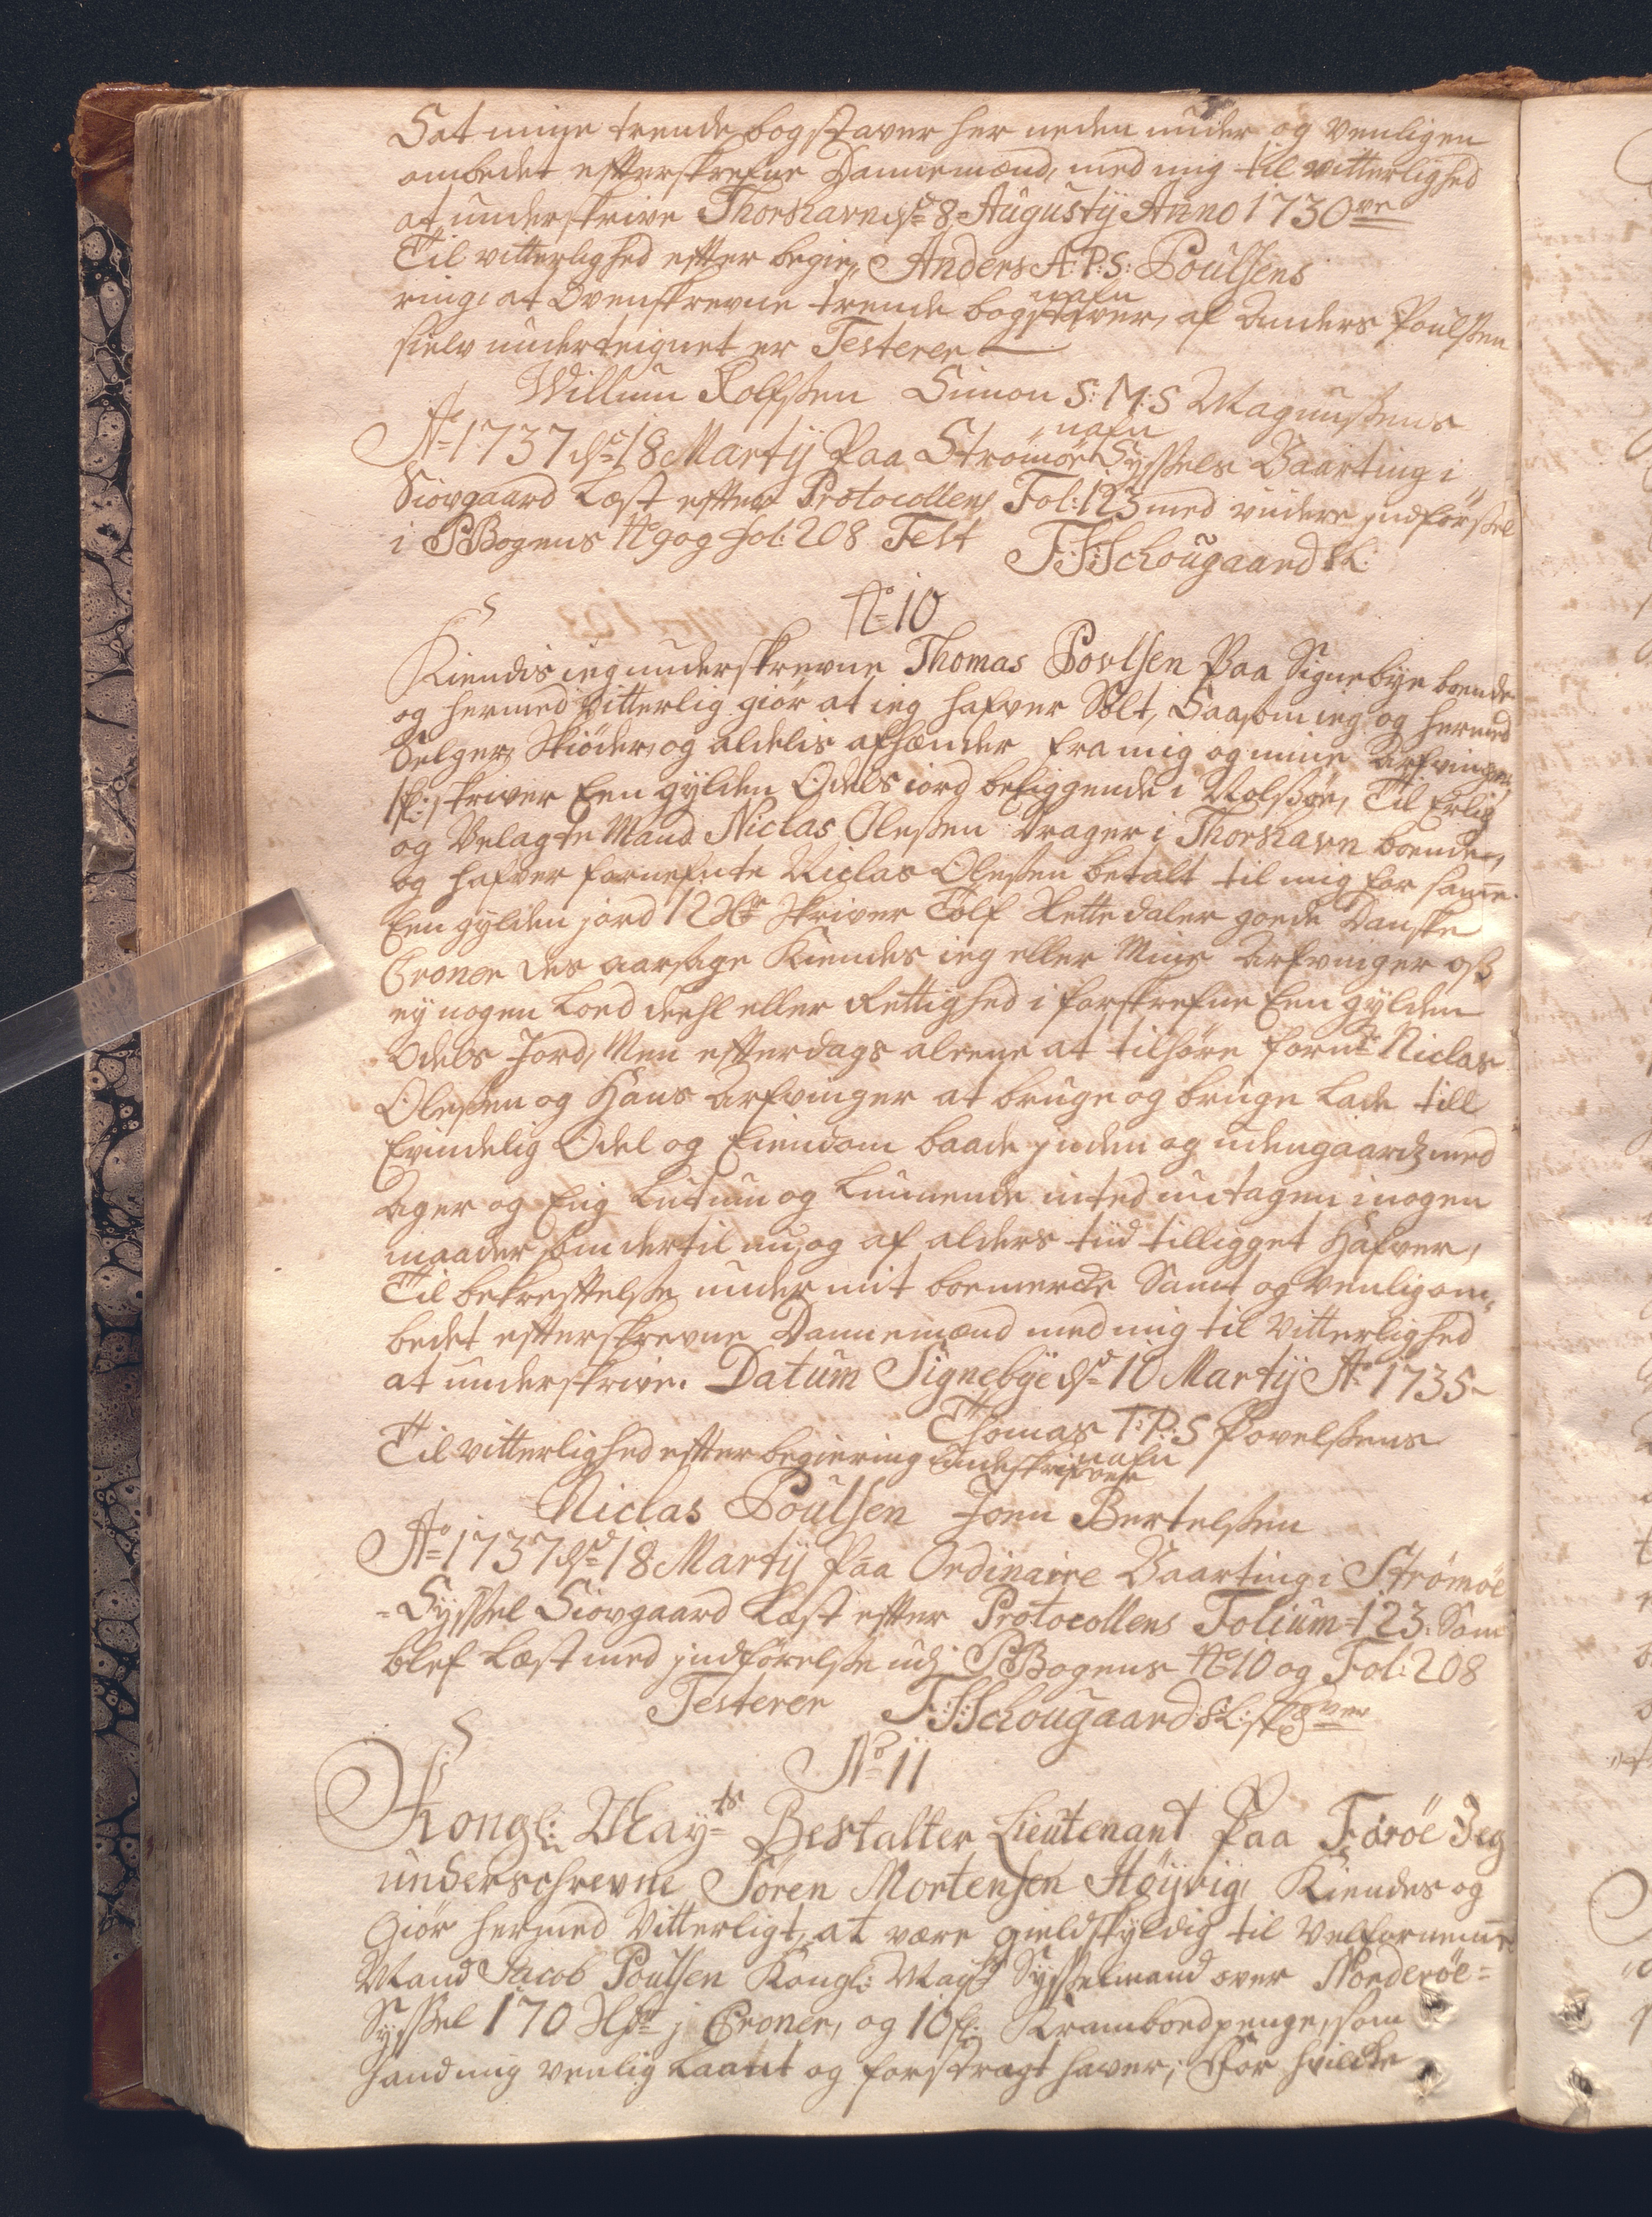 Sat mine trende bogstaver her neden under og venligen
ombedet efterskrefne Dannemænd, med mig til vitterlighed
at underskrive Thorshavn d: 8 Augusty Anno 1730ve
Til vitterlighed efter begie„ Anders A:P:S: Poulsens
nafn
ring, at Ovenskrevne trende bogstaver, af Anders Poulsen
sielv underteignet er Testerer
Willum Rolfsen Simon S:M:S Magnussens
nafn
Ao 1737 d: 18 Martij Paa Strömöe Syssels Vaarting i
Siovgaard Læst efter Protocollens Fol: 123 med videre indförsel
i PBogens No 9 og Fol: 208 Test F:S:Schougaard
No 10
Kiendis ieg underskrevne Thomas Povlsen Paa Signebye boende
og hermed Vitterlig giör at ieg hafver Solt, Saasom ieg og hermed
Selger, Skiöder, og aldelis afhænder fra mig og mine Arfvinger,
skriver Een gylden Odels iord beliggende i Nolsöe, Til Erlig
og Velagte Mand Niclas Olesen Drager i Thorshavn boende,
og hafver fornefnte Niclas Olesen betalt til mig for samme
Een gylden jord 12 Rdr skriver Tolf Rette daler goede Danske
Croner Des aarsage Kiendes ieg eller Mine Arfvinger oss
ey nogen Lod deehl eller Rettighed i forskrefne Een gylden
Odels Jord, Men efterdags aleene at tilhöre fornt Niclas
Olesen og Hans Arfvinger at bruge og bruge lade till
Evindelig Odel og Eiendom baade inden og udengaards med
Ager og Eng Lutum og Lunnende inted untagen i nogen
maader som dertil nu, og af alders tiid tilligget Hafver,
Til bekreftelse under mit boemercke Samt og Venlig om„
bedet efterskrevne Dannemænd med mig til Vitterlighed
at underskrive. Datum Signebye d: 10 Martij Ao 1735
Thomas T:P:S Povelsens
nafn
Til vitterlighed efter begiering underskrifver
Niclas Poulsen Joen Bertelsen
Ao 1737 d: 18 Martij Paa Ordinaire Vaarting i Strömöe
=Syssel Siovgaard Læst efter Protocollens Folium=123: Som
blef Læst med indförelse udj PBogens No 10 og Fol: 208
Testerer F:S:Schougaard
No 11
Kongl: Mayts Bestalter Lieutenant Paa Færöe Jeg
underschrevne Sören Mortensen Höyvig, Kiendes og
Giör hermed Vitterligt, at være gieldskyldig til Velfornemme
Mand Jacob Poulsen Kongl: Mayts Sysselmand over Norderöe=
Syssel 170 Rdr j Croner, og 10 sl: Krambodpenge, som
hand mig venlig Laant og forstragt haver; For hvilcke